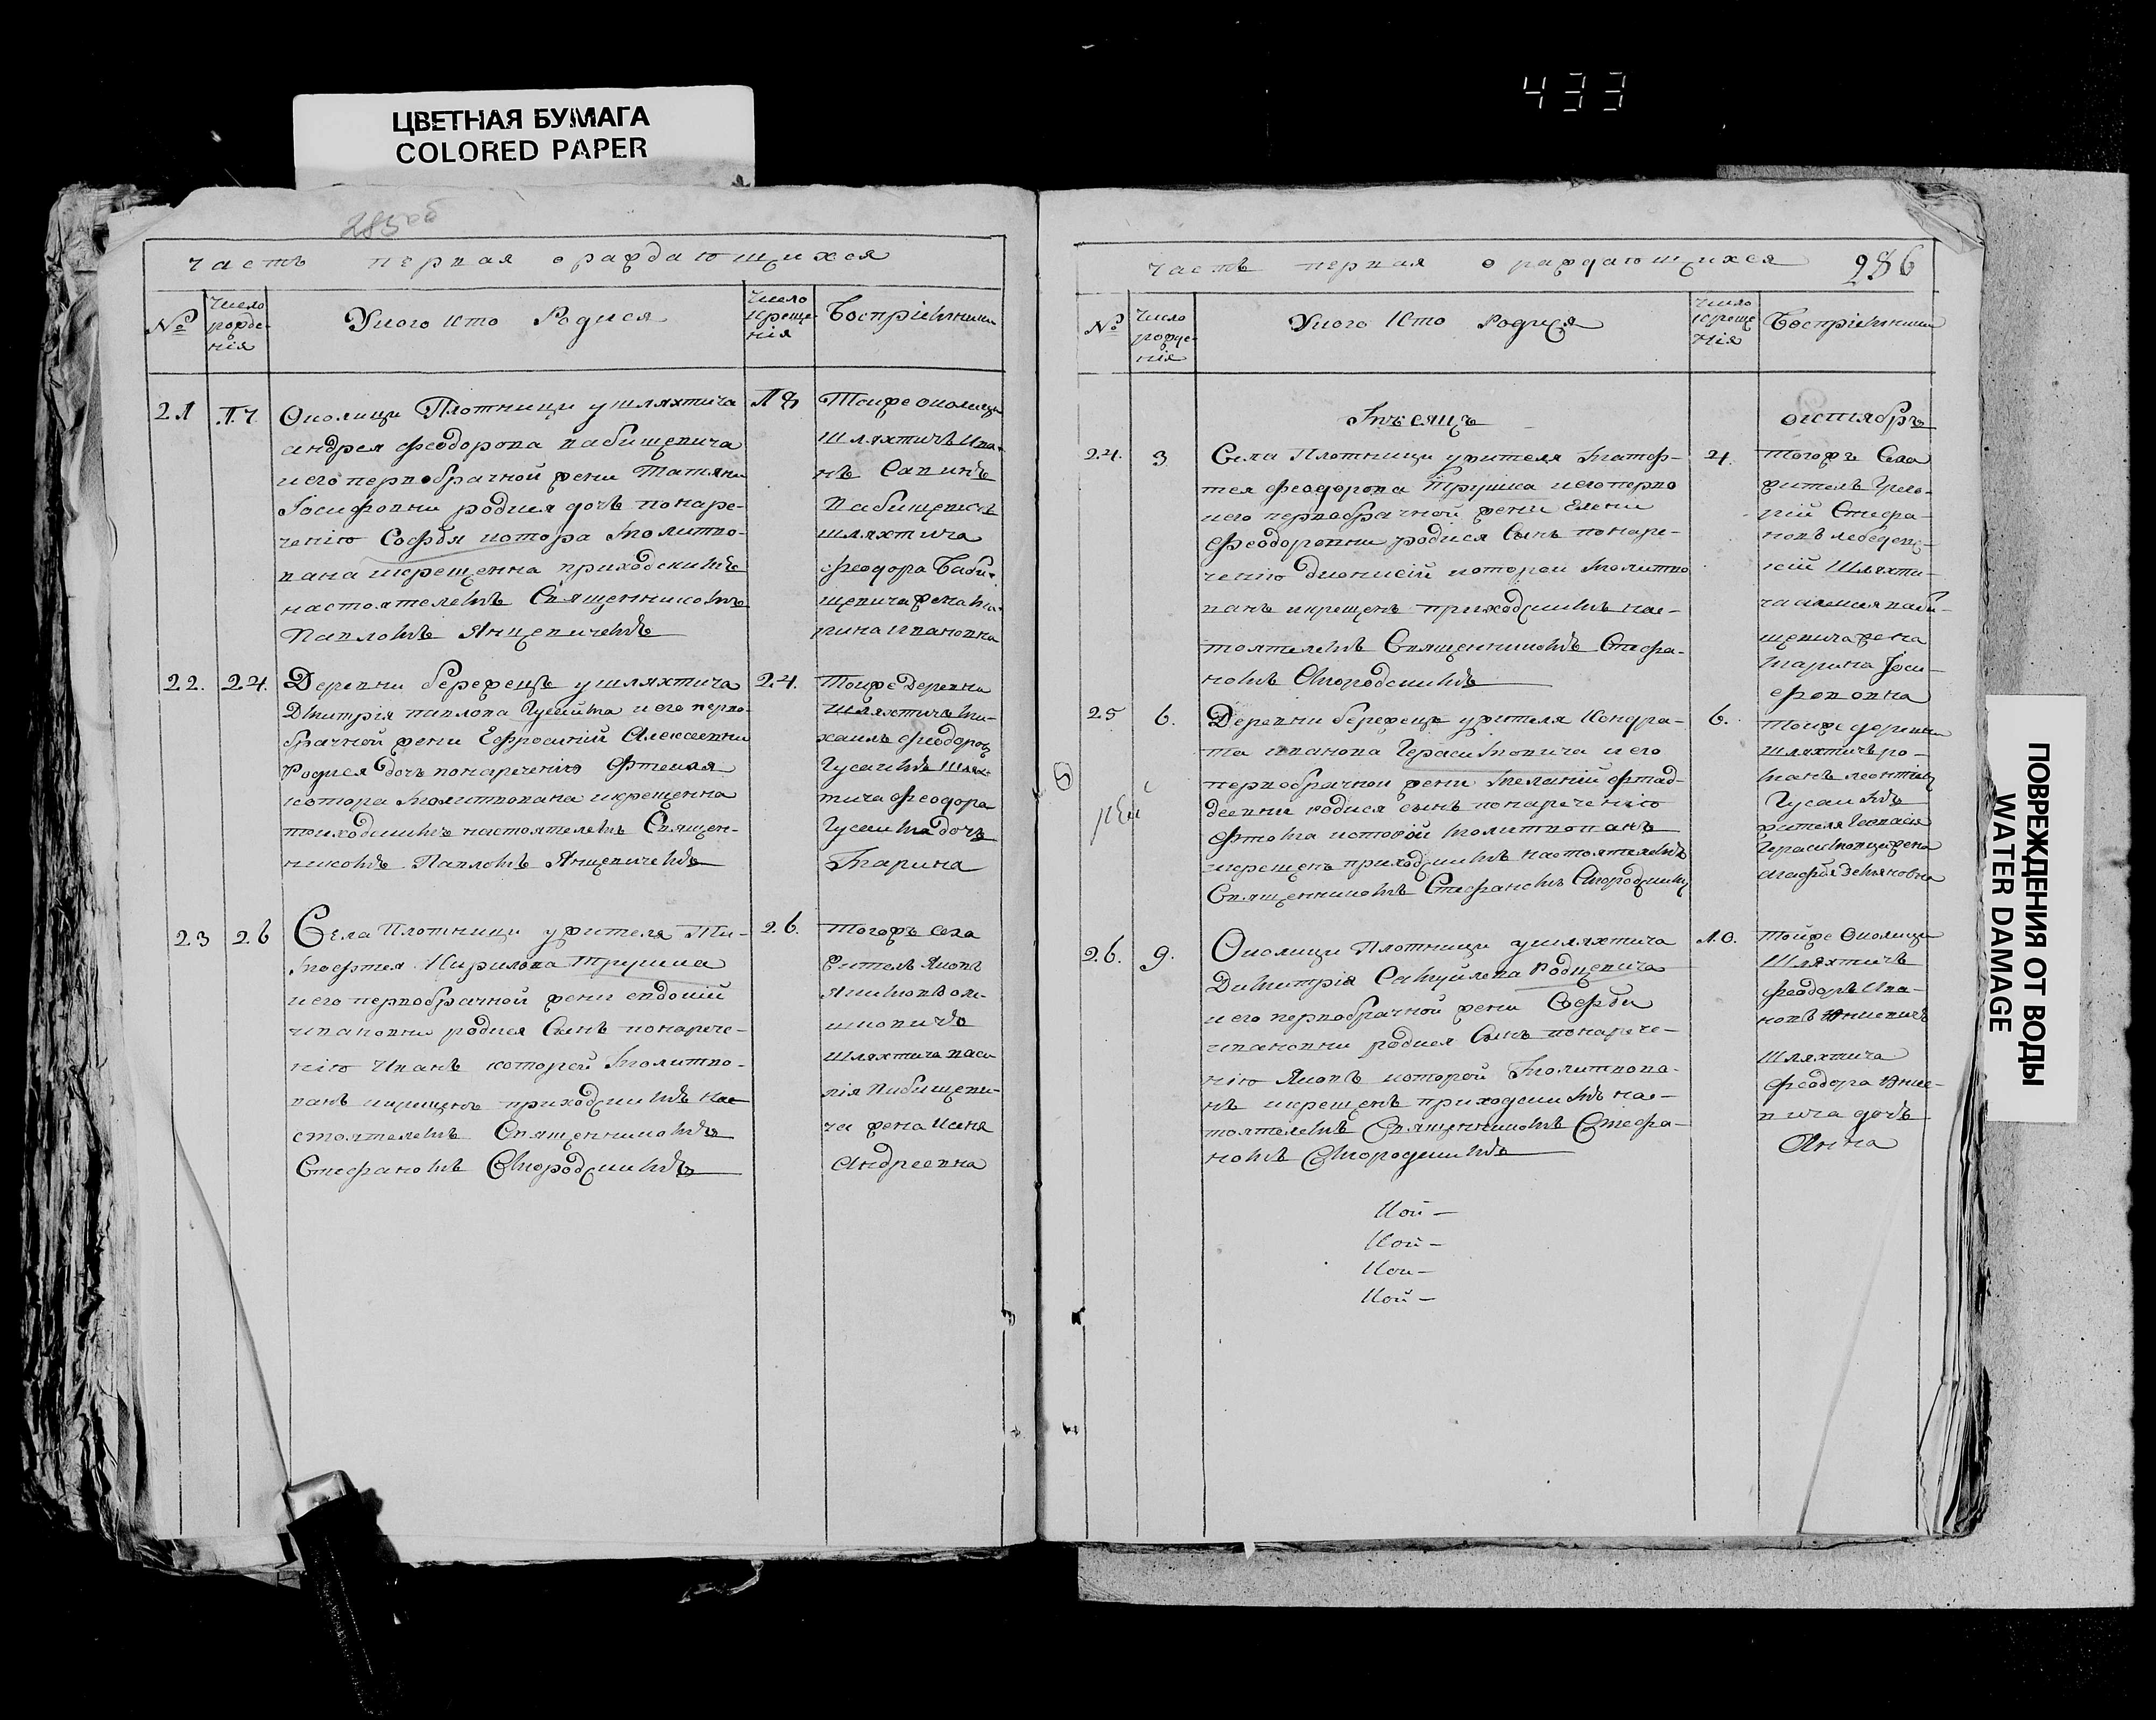 433
ЦВЕТНАЯ БУМАГА
COLORED PAPER
285об
часть первая о раждающихся
№
Число рожде-
нія
У кого кто Родися
Число креще-
нія
Воспріемники
21
17
18
Околицы Плотницы у шляхтича
андрея феодорова бабицевича
и его первобрачной жены Татяны
Іосифовны родися дочь по наре-
ченію Софья котора молитво-
вана и крещенна приходскимъ
настоятелемъ Священникомъ
Павломъ Янцевичемъ
Тойже околицы
шляхтичъ Ива-
нъ Савинъ
Бабицевичъ
шляхтича
феодора Баби-
цевича жена Ма-
рина Ивановна
22.
24.
24.
Деревни бережцъ у шляхтича
Дмитрія павлова Гусайма и его перво-
брачной жены Ефросиніи Алексеевны
Родися дочь по нареченію Фтекля
котора молитвована и крещенна
приходскимъ настоятелемъ Священ-
никомъ Павломъ Янцевичемъ
Тойже Деревни
Шляхтичъ Ми-
хаилъ феодоровъ
Гусаимъ шлях-
тича феодора
Гусаима дочь
Марина
23
26
26.
Села Плотницы у жителя Ти-
мофтея Кирилова Трушка
и его первобрачной жены евдокіи
ивановны родися Сынъ по нарече-
нію Иванъ которой молитво-
ванъ и крещенъ приходскимъ нас-
стоятелемъ Священникомъ
Стефаномъ Смородскимъ
Тогожъ села
Житель Яковъ
Якимовъ
Шляхтича васи-
лія Бабицеви-
ча жена
Андреевна
часть первая о раждающихся
286
№
Число рожде-
нія
У кого кто Родися
Число креще-
нія
Воспріемники
Месяцъ
октябръ
24.
3
4.
Села Плотницы у жителя матф-
тея феодорова Трушка и его перво
и его первобрачной жены Елены
Феодоровны родися Сынъ по наре-
ченію дионисій которой молитво
ванъ и крещенъ приходскимъ нас-
тоятелемъ Священникомъ Стефа-
номъ Смородскимъ
Тогожъ Села
житель Григо-
рій Стефа-
новъ лебедевс-
кій Шляхти-
ча алексея баби-
цевича жена
Марина Іоси-
фовна
25
6.
6.
Деревни бережцъ у жителя Кондра-
та иванова Герасимовича и его
первобрачной жены Меланіи фтад-
деевны родися сынъ по нареченію
Фтома которой молитвованъ
и крещенъ приходскимъ настоятелемъ
Священникомъ Стефаномъ Смородскимъ
Тойже деревни
шляхтичъ ро-
манъ леонтіевъ
Гусаимъ
жителя
жена
26.
9.
10.
Околицы Плотницы у шляхтича
Димитрія Самуйлова Родцевича
и его первобрачной жены Софьи
ивановны родися Сынъ по нарече-
нію Яковъ которой молитвова-
нъ и крещенъ приходскимъ нас-
тоятелемъ Священникомъ Стефа-
номъ Смородскимъ
Тойже Околицы
Шляхтичъ
феодоръ Ива-
новъ Янцевичъ
Шляхтича
феодора Янце-
вича дочь
Анна
ПОВРЕЖДЕНИЯ ОТ ВОДЫ
WATER DAMAGE